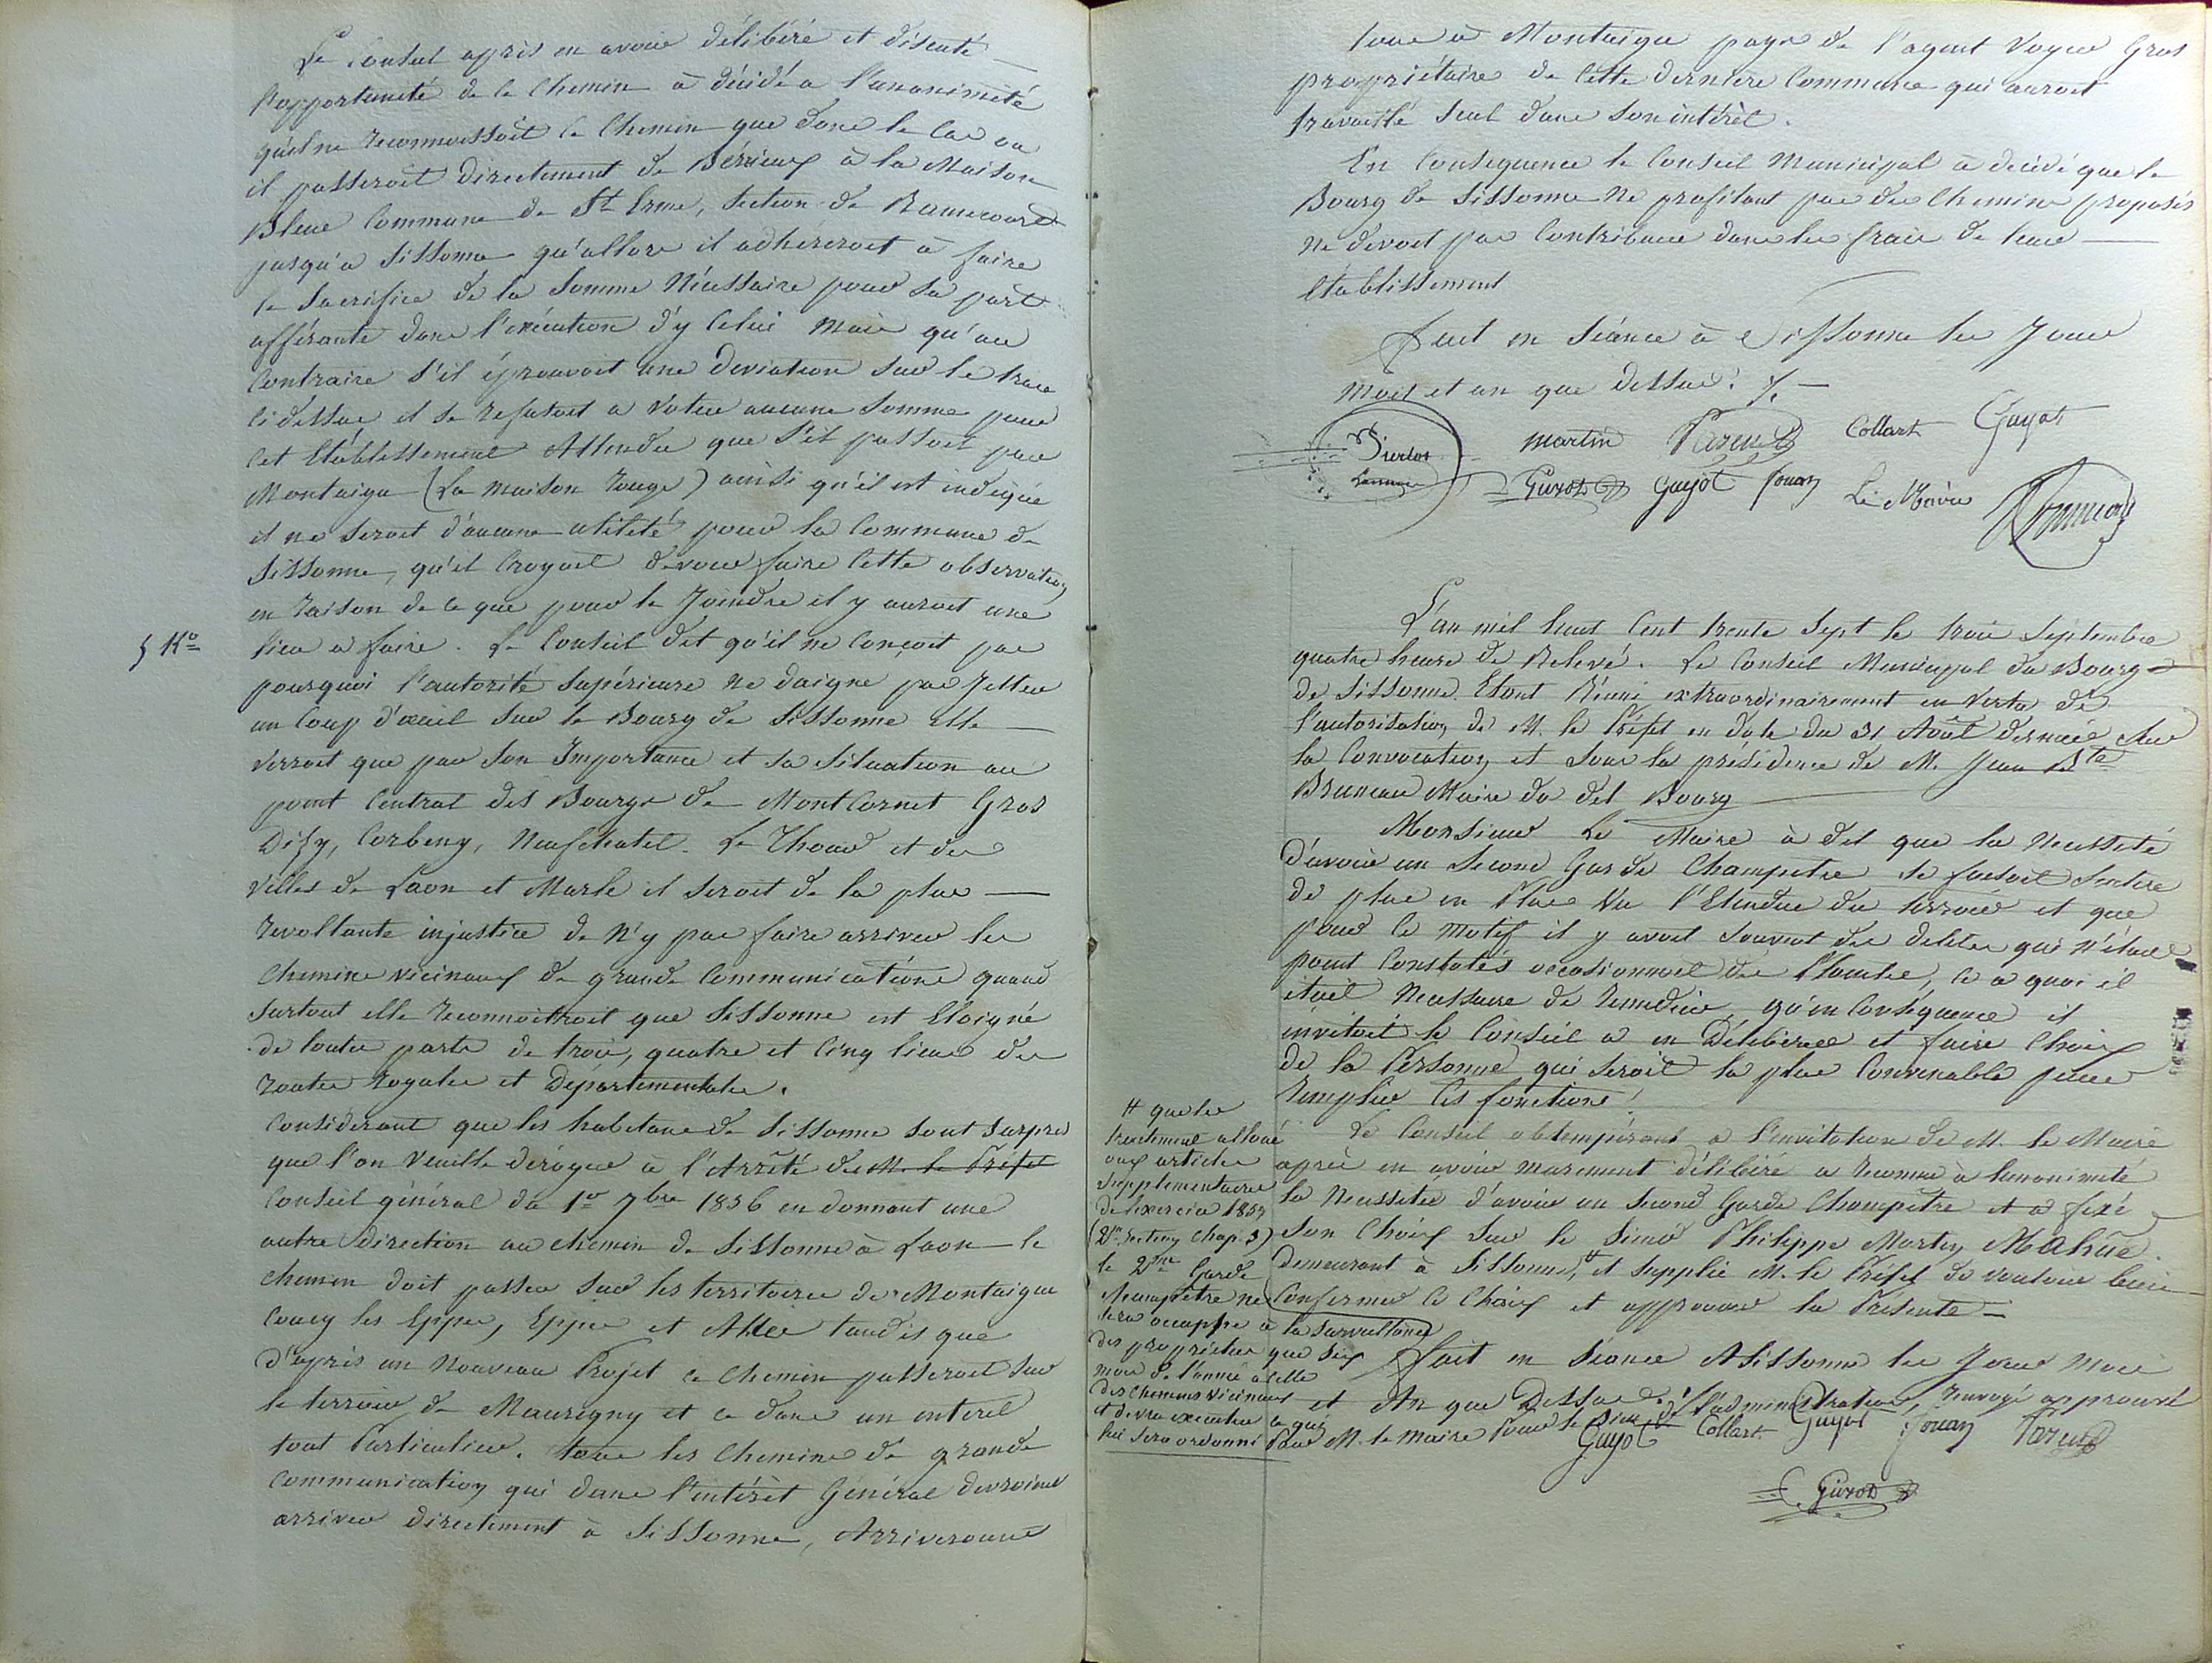 Le Conseil après en avoir délibéré et discuté
l'opportunité de ce Chemin à décidé a l'unanimité
qu'il ne reconnaissoit ce Chemin que dans le cas ou
il passeroit directement de Bérieux à la Maison
Bleue Commune de St Erme, Section de Ramecourt
jusqu'a Sissonne qu'allors il adhéreroit à faire
le Sacrifice de la Somme Nécessaire pour sa part
afférante dans l'exécution d'y Celui Mais qu'au
Contraire s'il éprouvoit une deviation sur le tracé
ci dessus il se refusoit a voter aucune Somme pour
cet Etablissement Attendu que s'il passoit par
Montaigu (La Maison Rouge) ainsi qu'il est indiqué
il ne seroit d'aucune utilité pour la Commune de
Sissonne, qu'il croyoit devoir faire cette observation
en raison de ce que pour le Joindre il y auroit une
5 Ko
lieu a faire. Le Conseil dit qu'il ne conçoit pas
pourquoi l'autorité Supérieure ne daigne pas Jetter
un Coup d'oeuil sur le Bourg de Sissonne Elle
verroit que par son Importance et sa Situation au
point Central des Bourgs de MontCornet Gros
Dizy, Corbeny, Neufchatel. Le Thour et des
Villes de Laon et Marle il seroit de la plus
revoltante injustice de N'y pas faire arriver les
Chemins vicinaux de grande Communications quand
surtout elle reconnoitroit que Sissonne est Eloigné
de toutes parts de trois, quatre et Cinq lieues des
routes royales et Départementales.
Considérant que les habitans de Sissonne sont surpris
que l'on veuille déroger à l'Arrêté du M. le Préfet
Conseil général du 1er 7bre 1836 en donnant une
autre direction au Chemin de Sissonne à Laon le
Chemin doit passer sur les territoires de Montaigu
Coucy les Eppes, Eppes et Athies tandis que
d'après un Nouveau Projet ce Chemin passeroit sur
le terroir de Mauregny et ce dans un interêt
tout Particulier. tous les Chemins de grande
Communication qui dans l'intérêt Général devroient
arriver directement à Sissonne, Arriveroient
tous à Montaigu pays de l'agent Voyer Gros
propriétaire de Cette derniere Commune qui auroit
travaillé seul dans son intérêt.
En Consequence le Conseil Municipal à decidé que le
Bourg de Sissonne Ne profitant pas des Chemins proposés
ne devoit pas Contribuer dans les frais de leur
Etablissement
fait en Séance à Sissonne les Jour
Mois et an que dessus. /.
Martin Collart Guyot
Guyot Jouan Le Maire
L'an mil huit cent trente Sept le trois Septembre
quatre heure de Relevé. Le Conseil Municipal du Bourg
de Sissonne Etant Réuni extraordinairement en Vertu de
l'autorisation de M. le Préfet en date du 31 Août dernier Sur
la Convocation et sous la présidence de M. Jean Bte
Bruneau Maire du dit Bourg
Monsieur Le Maire à dit que la Nécessité
d'avoir un second Garde Champetre se faisoit sentire
de plus en Plus Vu l'Etendue du terroir et que
pour ce motif il y avoit Souvent des delits qui n'étoient
point Constatés occasionnoit des Plaintes, ce a quoi il
étoit Necessaire de remedier qu'en Conséquence il
invitoit le Conseil a en Délibérer et faire Choix
de la Personne qui seroit la plus Convenable pour
remplir ces fonctions.
Le Conseil obtempérant a l'invitation de M. le Maire
après en avoir murement délibéré a reconnu à lunanimité
la Necessitée d'avoir un second Garde Champêtre et a fixé
son Choix sur le sieur Philippe Martin Mahüe
demeurant à Sissonne, # et supplie M. le Préfet de vouloir bien
Confirmer ce Choix et approuver la Présente
fait en Séance A Sissonne les Jour Mois
et An que Dessus. renvoyé approuvé
Pour M. le Maire Guyot Collart Guyot Jouan
# que le
traitement alloué
aux articles
Supplémentaires
de l'exercice 1837
(2me Section Chap. 3)
le 2me Garde
Champêtre ne
sera occuppé à la Surveillance
des propriétés que six
mois de l'année à celle
des Chemins Vicinaux
et devra executer ce qui
lui sera ordonné